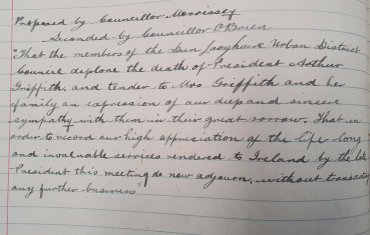 Proposed by Councillor Morrissey
Seconded by Councillor O'Brien
"That the members of the Dun Laoghaire Urban District
Council deplore the death of President Arthur
Griffith, and tender to Mrs Griffith and her
family an expression of our deep and sincere
sympathy with them in their great sorrow. That in
order to record our high appreciation of the life long
and invaluable services rendered to Ireland by the late
President this meeting do now adjourn, without transacting
any further business"